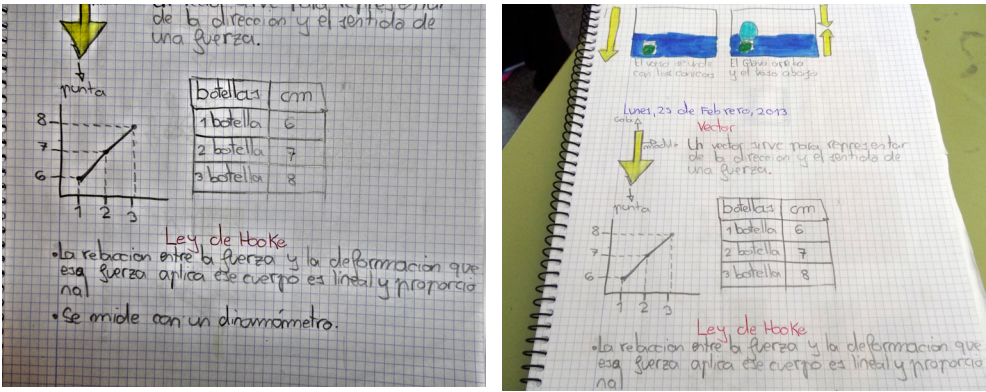 de la direccion y el sentido de
una fuerza.
punta
botellas cm
1 botella 6
2 botella 7
3 botella 8
8
7
6
1 2 3
Ley de Hooke
• La relaccion entre la fuerza y la deformación que
esa fuerza aplica ese cuerpo es lineal y proporcio
nal
• Se mide con un dinamómetro.
El vaso se unde
con las canicas
El Globo arriba
y el vaso abajo
Lunes, 25 de Febrero, 2013
Vector
Cola
modulo
Un vector sirve para representar
de la direccion y el sentido de
una fuerza.
punta
botellas cm
1 botella 6
2 botella 7
3 botella 8
8
7
6
1 2 3
Ley de Hooke
• La relaccion entre la fuerza y la deformación que
esa fuerza aplica ese cuerpo es lineal y proporcio
nal